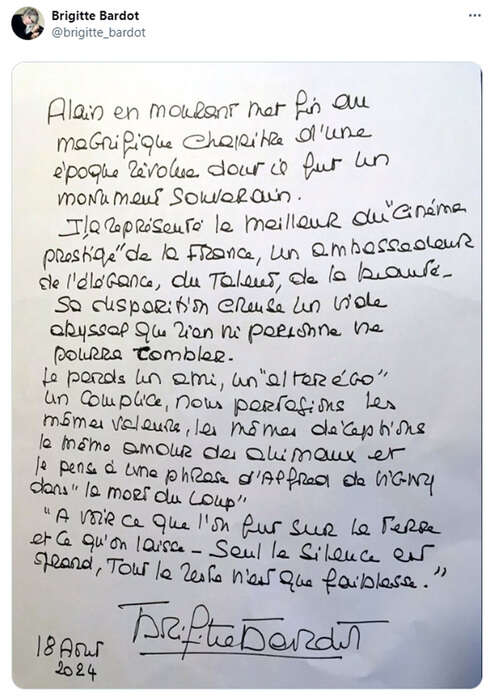 Brigitte Bardot
@brigitte_bardot
Alain en mourant met fin au
magnifique chapitre d'une
époque révolue dont il fut un
monument souverain.
Il a représenté le meilleur du "cinéma
prestige" de la France, un ambassadeur
de l'élégance, du talent, de la beauté -
Sa disparition creuse un vide
abyssal que rien ni personne ne
pourra combler.
Je perds un ami, un "alter égo"
un complice, nous partagions les
mêmes valeurs, les mêmes déceptions
le même amour des animaux et
je pense à une phrase d'Alfred de VIGNY
dans "la mort du loup"
"A voir ce que l'on fut sur la Terre
et ce qu'on laisse - Seul le silence est
grand, Tout le reste n'est que faiblesse."
Brigitte Bardot
18 Août
2024